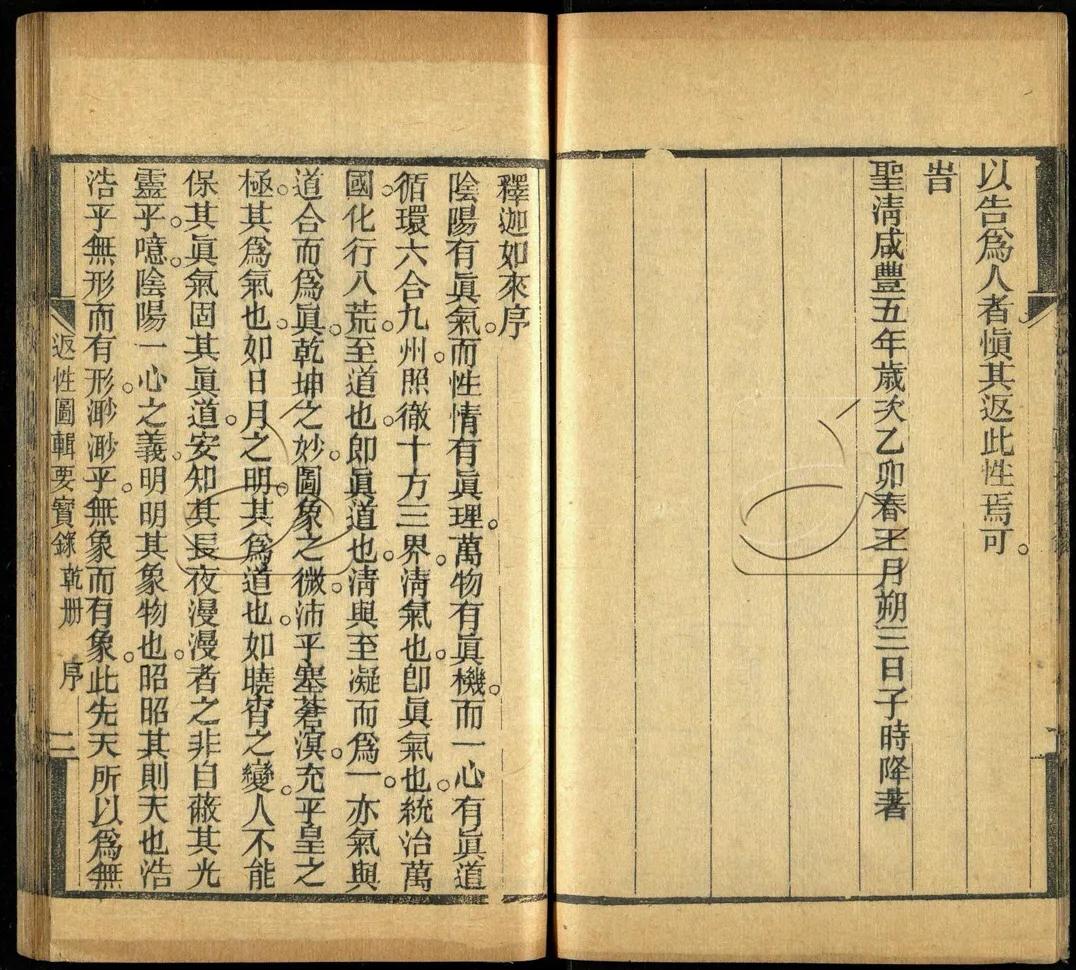 以告爲人者愼其返此性焉可。
旹
聖淸咸豐五年歲次乙卯春王月朔三日子時降著
釋迦如來序
陰陽有眞氣。而性情有眞理。萬物有眞機。而一心有眞道
循環六合九州。照徹十方三界。淸氣也。卽眞氣也。統治萬
國。化行八荒。至道也。卽眞道也。淸與至凝而爲一。亦氣與
道合而爲眞。乾坤之妙。圖象之微。沛乎塞蒼溟。充乎皇之
極。其爲氣也。如日月之明。其爲道也。如曉宵之變。人不能
保其眞氣。固其眞道。安知其長夜漫漫者之非自蔽其光
靈乎。噫。陰陽一心之義。明明其象物也。昭昭其則天也。浩
浩乎無形而有形。渺渺乎無象而有象。此先天所以爲無
返性圖輯要寶錄 乾册 序 二